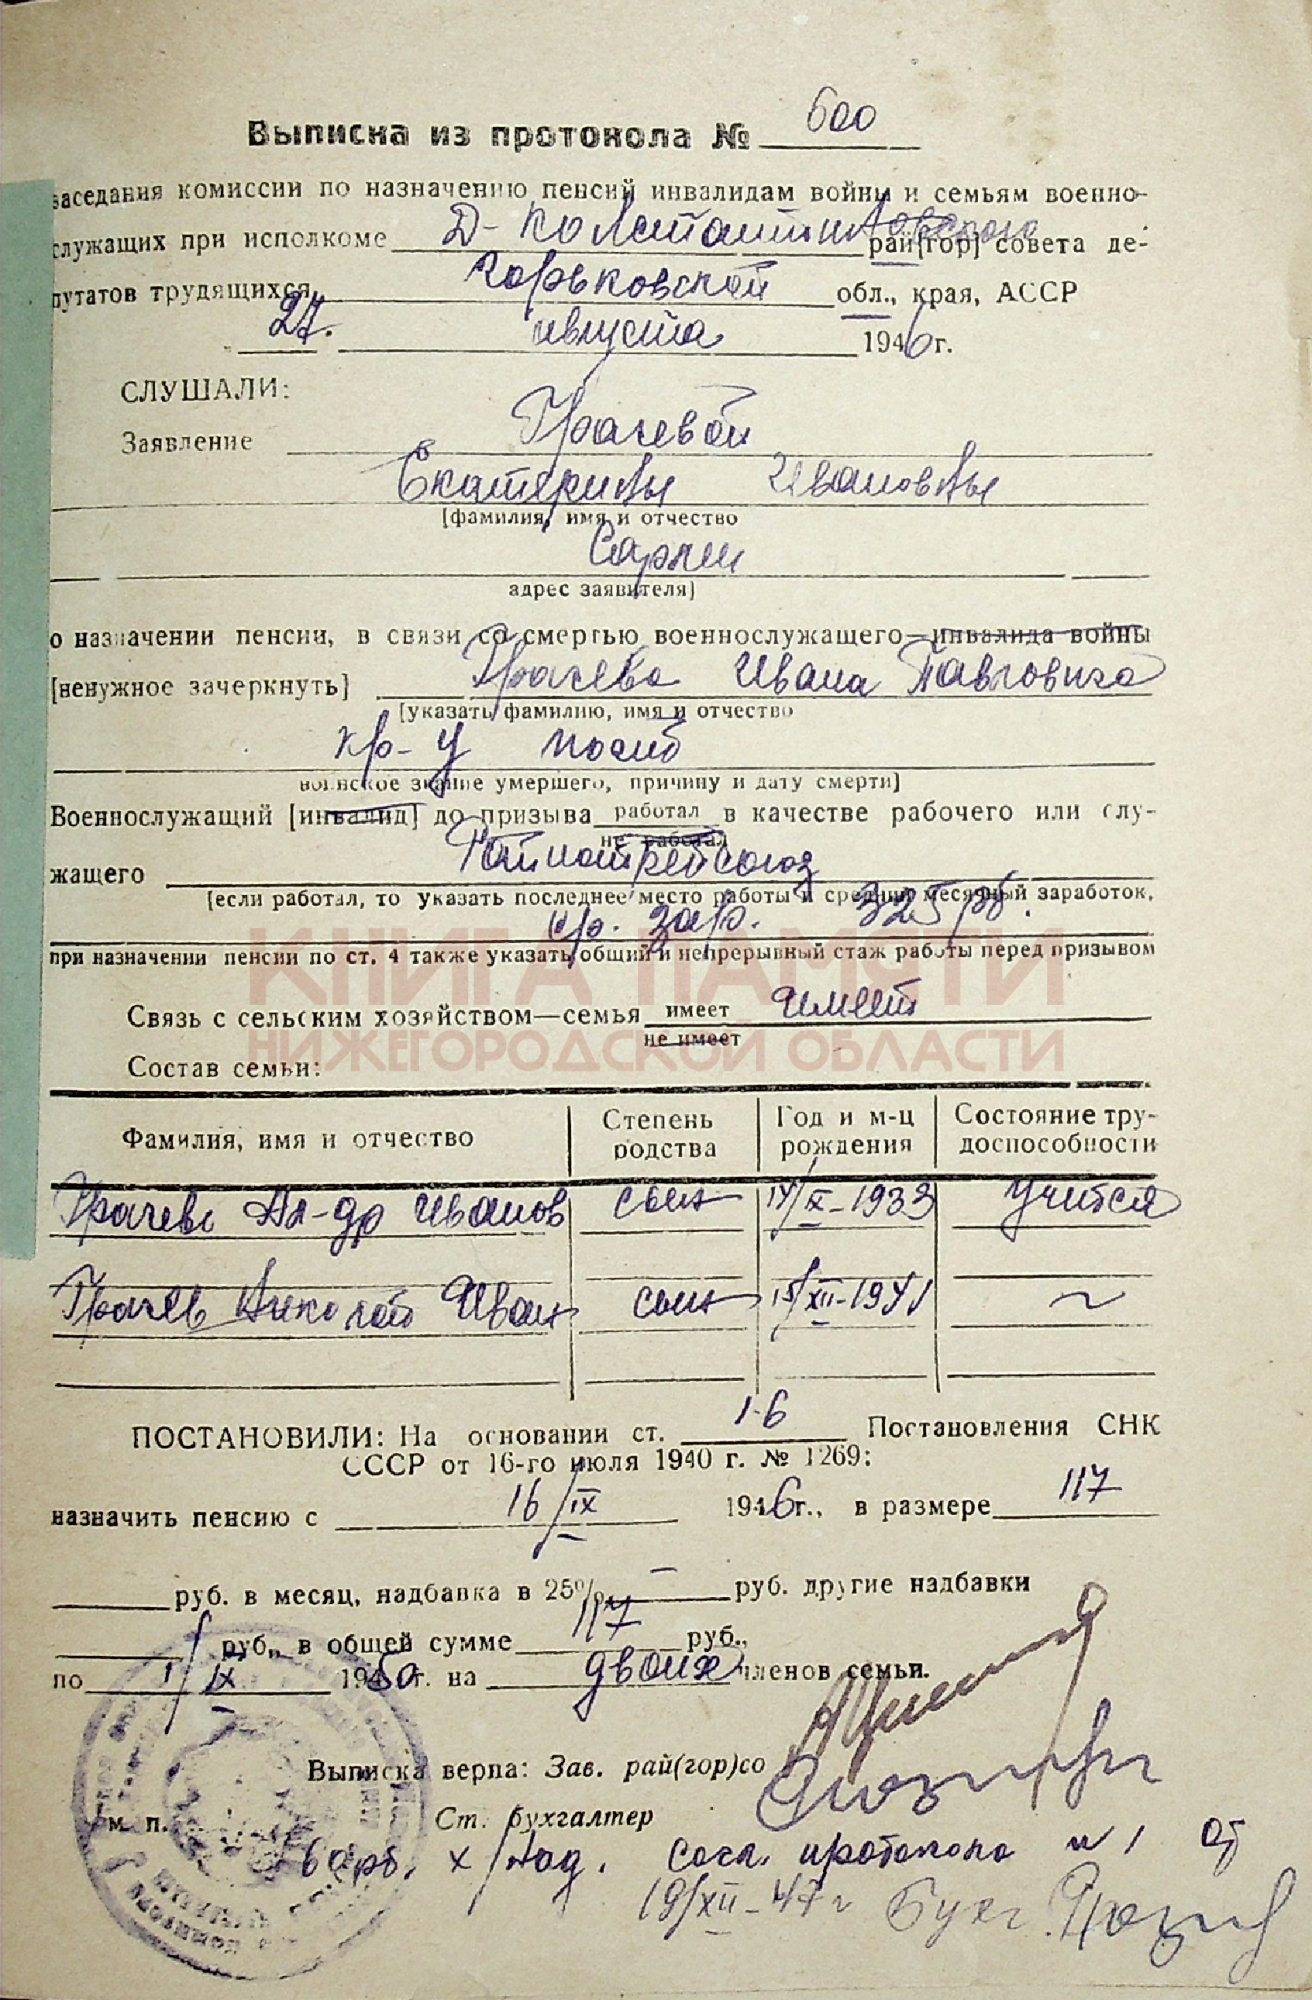 Выписка из протокола № 600
заседания комиссии по назначению пенсий инвалидам войны и семьям военно-
служащих при исполкоме Д-Константиновского рай(гор) совета де-
путатов трудящихся Горьковской обл., края, АССР
27. августа 1946 г.
СЛУШАЛИ:
Заявление Грачевой
Екатерины Ивановны
[фамилия, имя и отчество
Сарлеи
адрес заявителя]
о назначении пенсии, в связи со смертью военнослужащего—инвалида войны
[ненужное зачеркнуть] Грачева Ивана Павловича
[указать фамилию, имя и отчество
кр-ц погиб
воинское звание умершего, причину и дату смерти]
Военнослужащий [инвалид] до призыва работал в качестве рабочего или слу-
не работал
жащего Райпотребсоюз
[если работал, то указать последнее место работы и средний месячный заработок,
ср. зар. 325 рб.
при назначении пенсии по ст. 4 также указать общий и непрерывный стаж работы перед призывом
КНИГА ПАМЯТИ
НИЖЕГОРОДСКОЙ ОБЛАСТИ
Связь с сельским хозяйством—семья имеет имеет
не имеет
Состав семьи:
Фамилия, имя и отчество Степень родства Год и м-ц рождения Состояние тру-
доспособности
Грачев Ал-др Иванов сын 14/X-1933 учится
Грачев Николай Иван сын 15/XII-1941 ~
ПОСТАНОВИЛИ: На основании ст. 1-6 Постановления СНК
СССР от 16-го июля 1940 г. № 1269:
назначить пенсию с 16/IX 1946 г., в размере 117
руб. в месяц, надбавка в 25% — руб. другие надбавки
руб., в общей сумме 117 руб.,
по 1/IX 1950 г. на двоих членов семьи.
Выписка верна: Зав. рай(гор)со
м. п. Ст. бухгалтер
рб. х/над. согл. протокола № 1 от
19/XII-47 г Бухг.